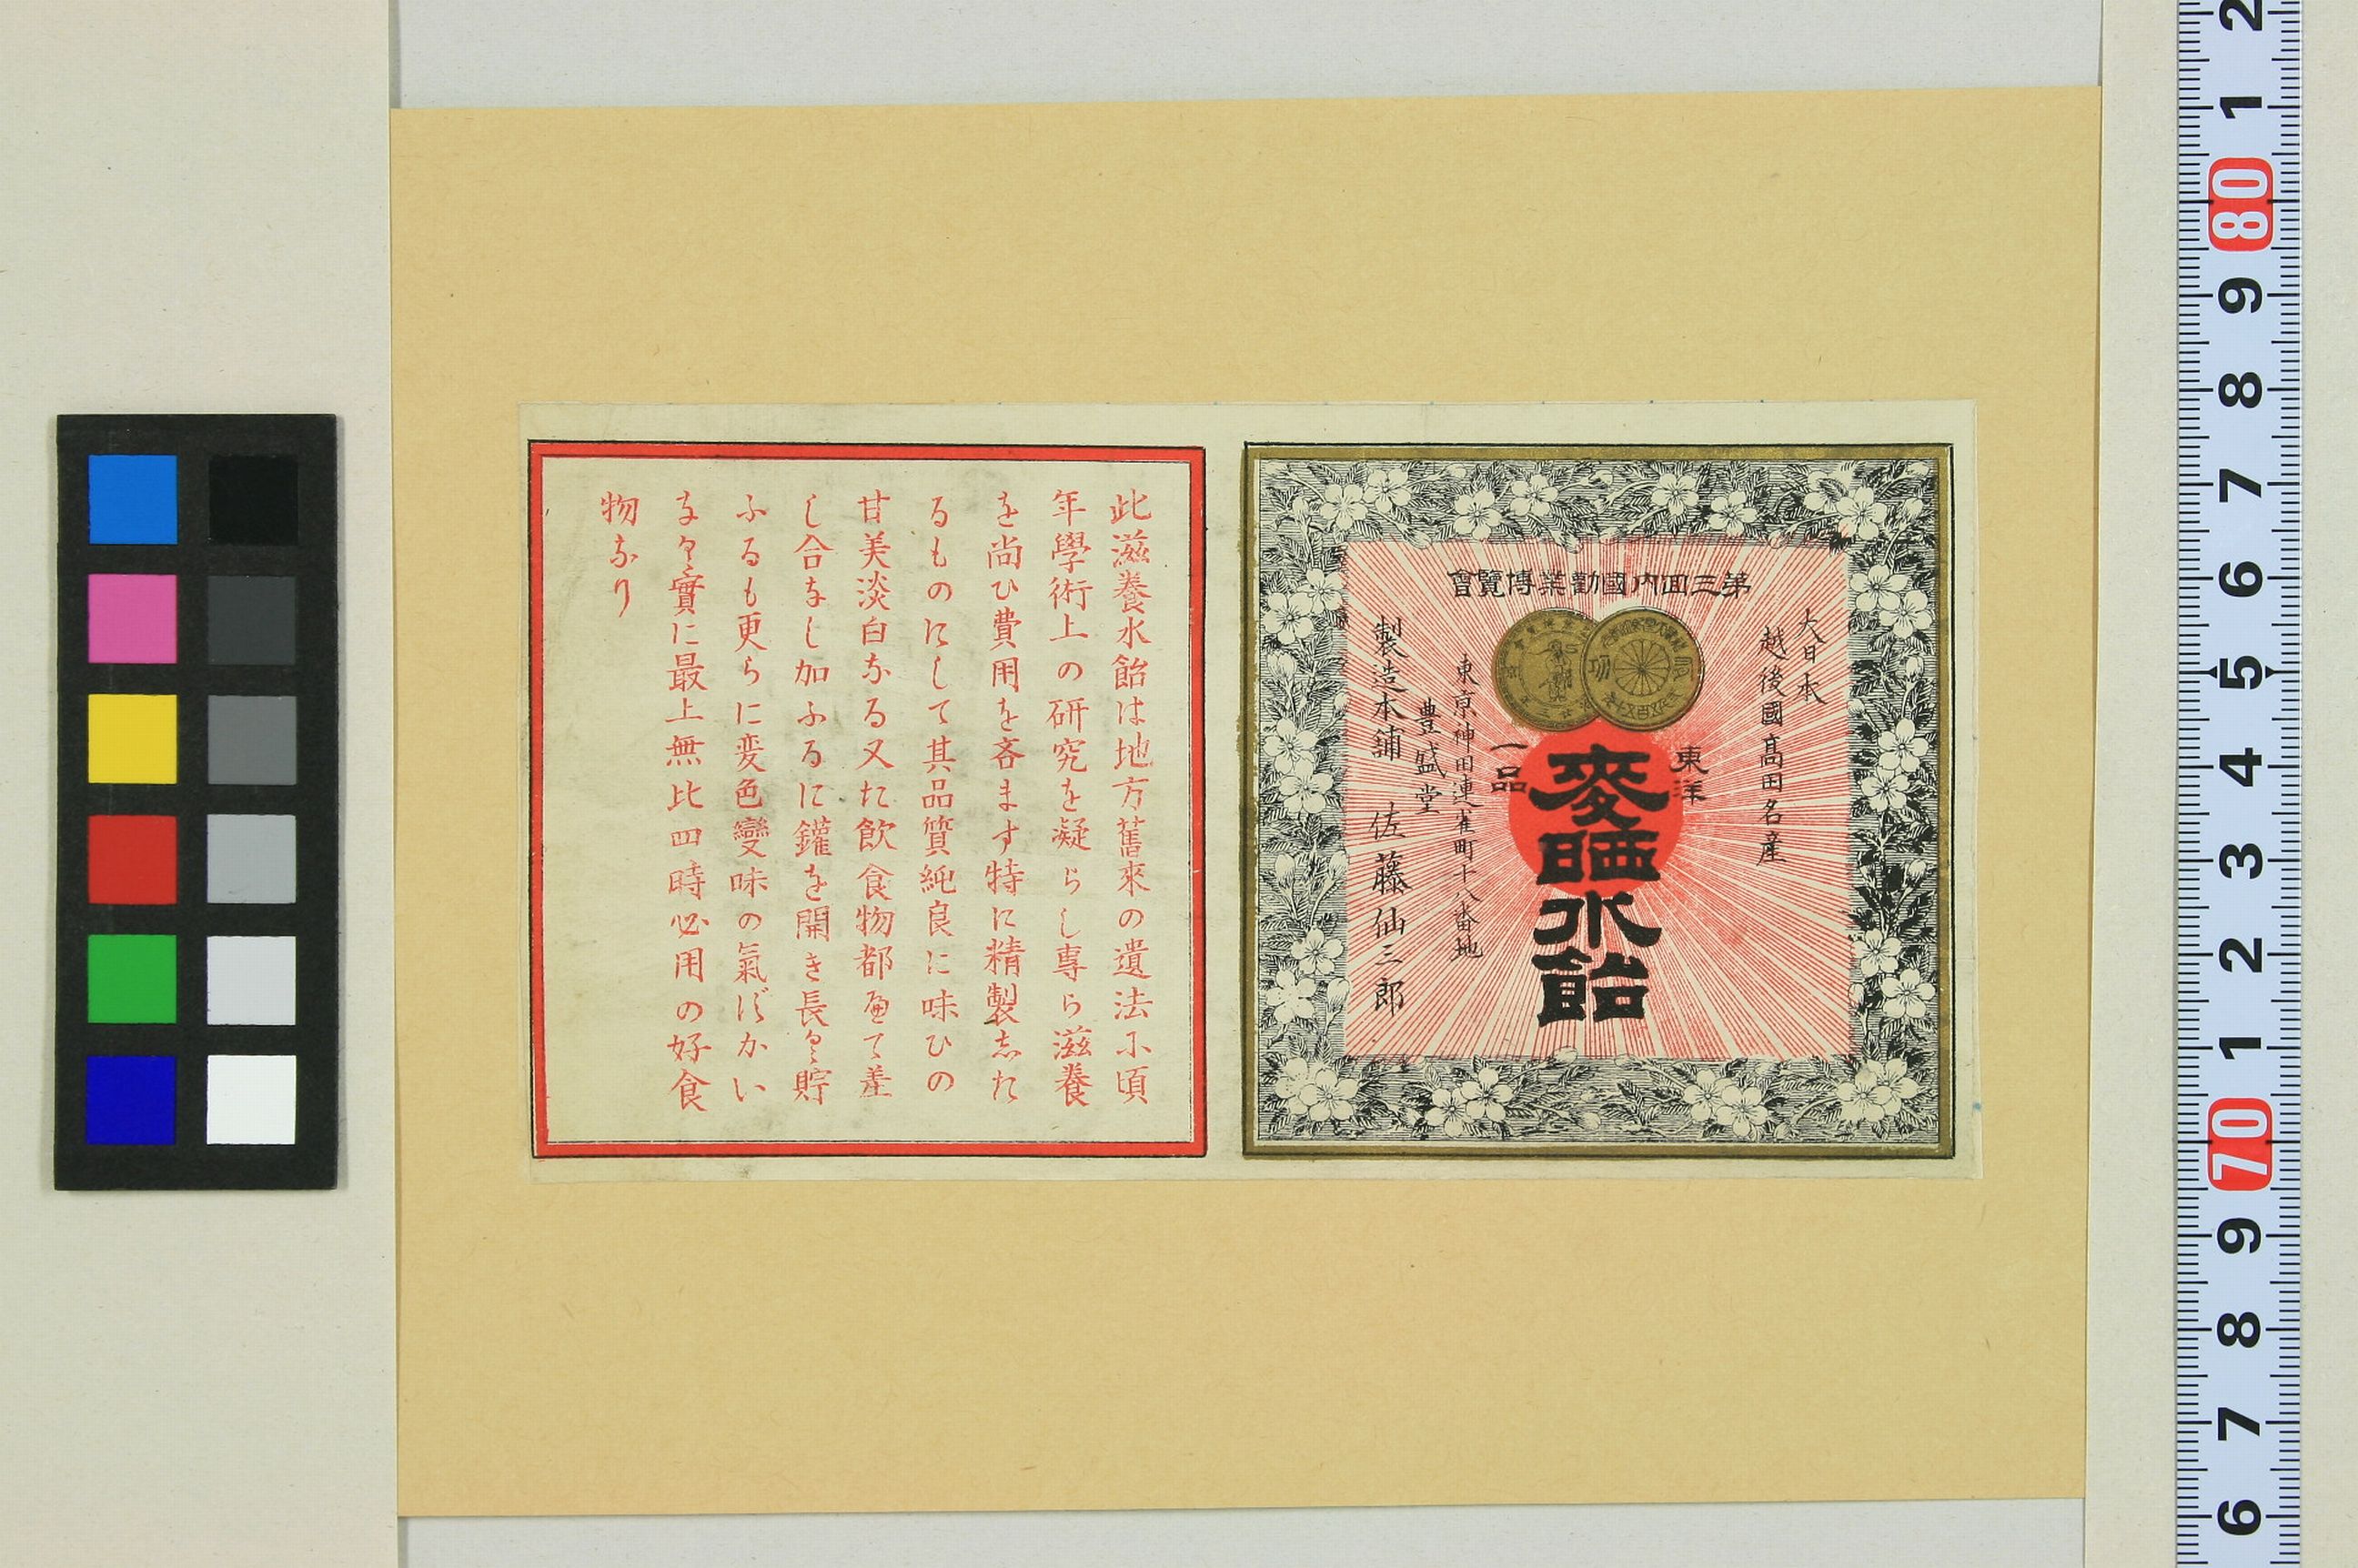 第三回内國勸業博覽會
大日本
越後國高田名産
東洋
一品
麥晒水飴
東京神田連雀町十八番地
豊盛堂
製造本舗 佐藤仙三郎
此滋養水飴は地方舊來の遺法に頃
年學術上の研究を凝らし專ら滋養
を尚ひ費用を吝ます特に精製志た
るものにして其品質純良に味ひの
甘美淡白なる又た飲食物都面て差
し合なし加ふるに鑵を開き長く貯
ふるも更らに変色變味の氣づかい
なく實に最上無比四時必用の好食
物なり
2
1
80
9
8
7
6
5
4
3
2
1
70
9
8
7
6